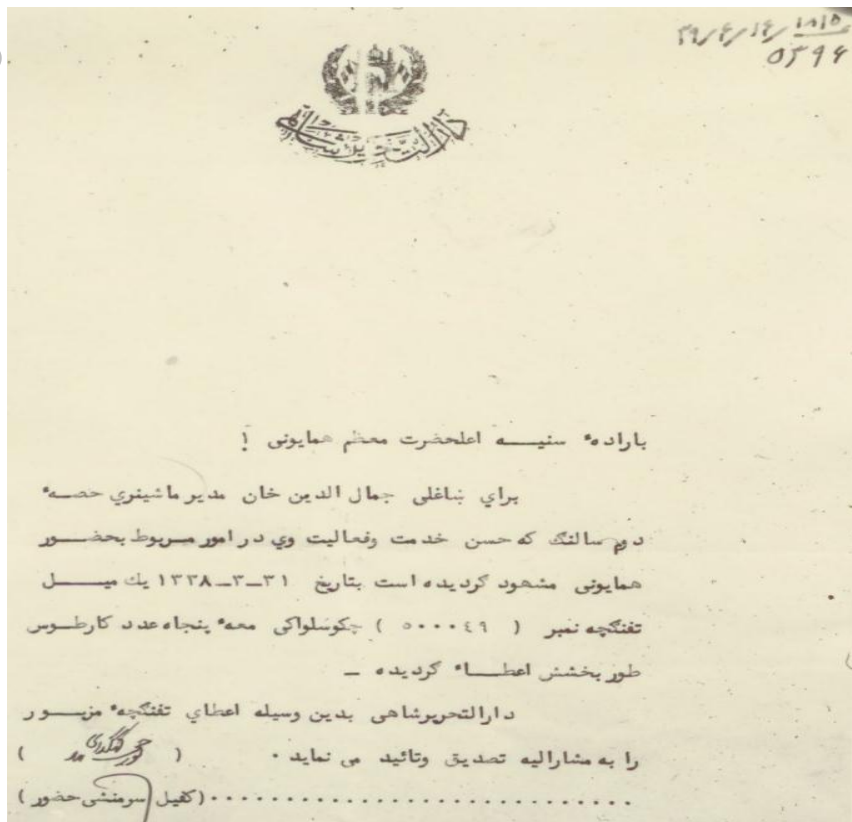 ۳۹/۴/۱۶/ ۱۸۱۵
۵۳۹۶
دارالتحریر شاهی
باراده‌ٔ سنیـــه اعلحضرت معظم همایونی !
برای ښاغلی جمال الدین خان مدیر ماشینری حصهٔ
دوم سالنگ که حسن خدمت وفعالیت وی در امور مربوط بحضــور
همایونی مشهود گردیده است بتاریخ ۳۱ــ۳ــ۱۳۳۸ یك میــل
تفنگچه نمبر ( ۵۰۰۰۴۹ ) چکوسلواکی معه‌ٔ پنجاه عدد کارطــوس
طور بخشش اعطــاء گردیده ــ
دارالتحریرشاهی بدین وسیله اعطای تفنگچه‌ٔ مزبــور
را به مشارالیه تصدیق وتائید می نماید ٠ ( )
..............................(کفیل سرمنشی حضور )